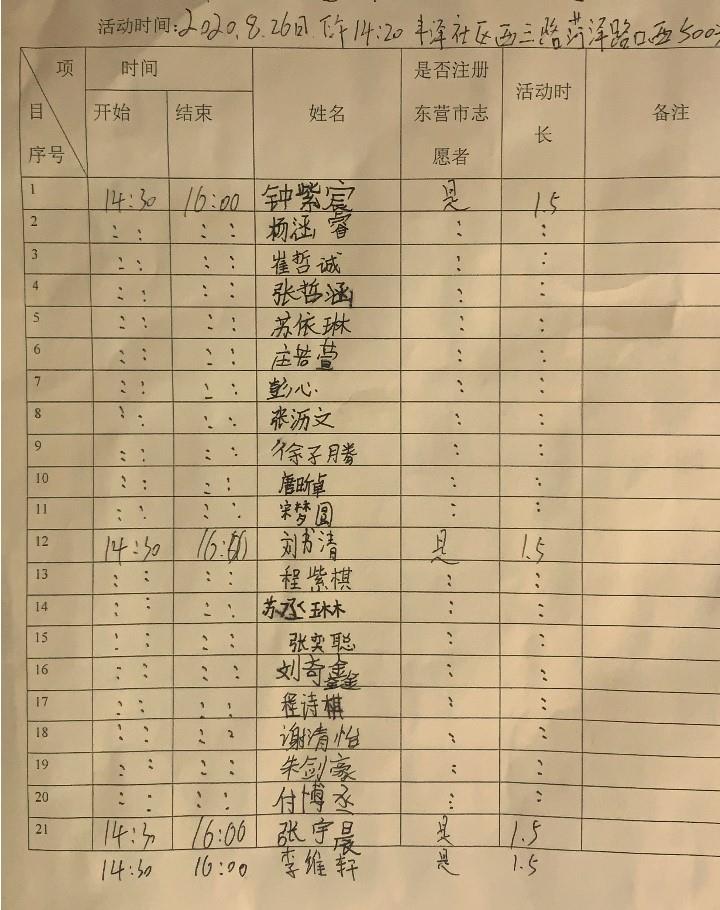 活动时间:2020.8.26日 下午14:20 丰泽社区西三路菏泽路口西500
项 时间 是否注册 活动时
目 开始 结束 姓名 东营市志 长 备注
序号 愿者
1 14:30 16:00 钟紫宸 是 1.5
2 : : : : 杨涵睿 : :
3 : : : : 崔哲诚 : :
4 : : : : 张哲涵 : :
5 : : : : 苏依琳 : :
6 : : : : 庄若萱 : :
7 : : : : 彭心 : :
8 : : : : 张沥文 : :
9 : : : : 徐子腾 : :
10 : : : : 唐昕卓 : :
11 : : : : 宋梦圆 : :
12 14:30 16:00 刘书清 是 1.5
13 : : : : 程紫棋 : :
14 : : : : 苏丞琳 : :
15 : : : : 张奕聪 : :
16 : : : : 刘奇鑫 : :
17 : : : : 程诗棋 : :
18 : : : : 谢清怡 : :
19 : : : : 朱剑豪 : :
20 : : : : 付博丞 : :
21 14:30 16:00 张宇晨 是 1.5
14:30 16:00 李维轩 是 1.5